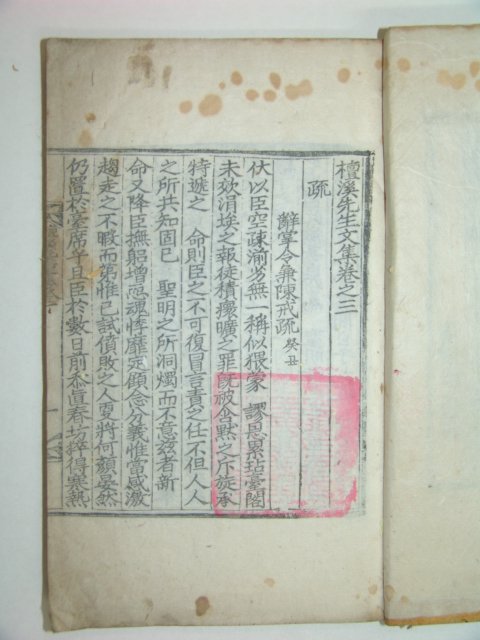 檀溪先生文集卷之三
疏
辭掌令兼陳戒疏 癸丑
伏以臣空疎湔劣無一稱似猥蒙 謬恩累玷臺閣
未效涓埃之報徒積瘝曠之罪旣被含默之斥旋承
特遞之 命則臣之不可復冒言責之任不但人人
之所共知固已 聖明之所洞燭而不意玆者新
命又降臣撫躬增恧魂悸靡定顧念分義惟當感激
趨走之不暇而第惟已試僨敗之人更將何顔晏然
仍置於臺席乎且臣於數日前忝直春坊猝得寒熱